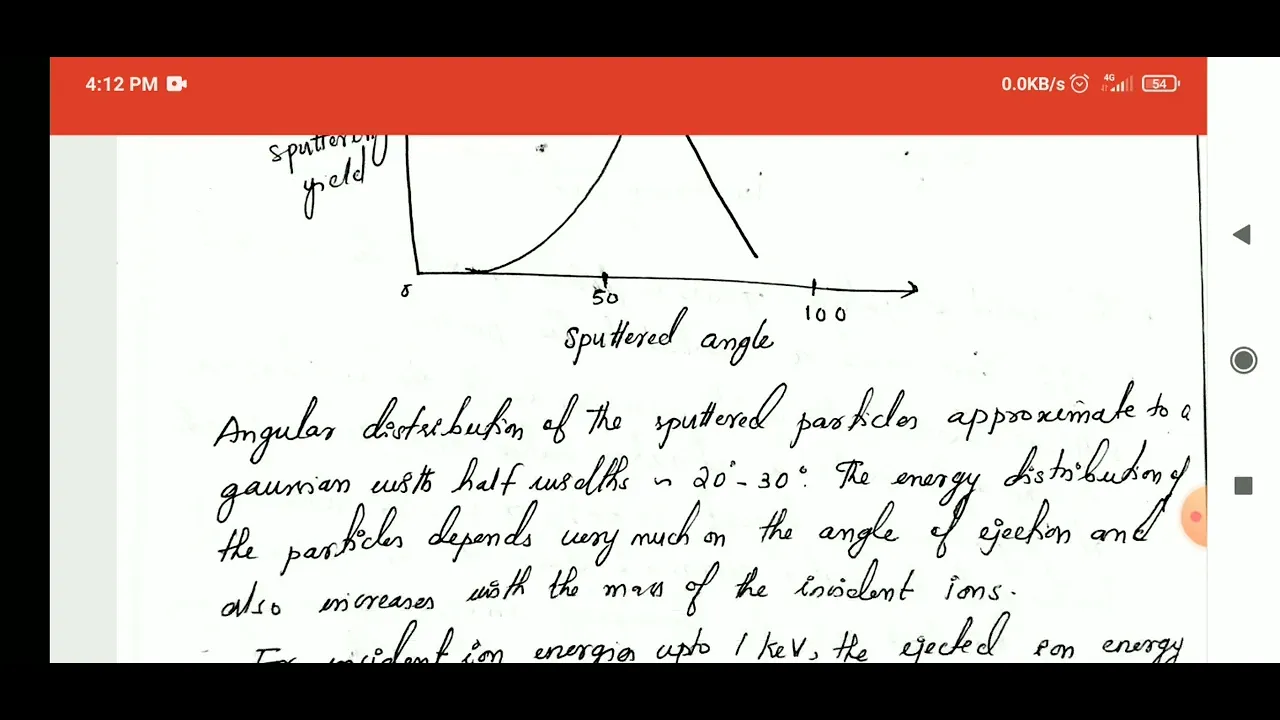 4:12 PM
0.0KB/s 4G 54
sputtering
yield
0
50
100
sputtered angle
Angular distribution of the sputtered particles approximate to a
gaussian with half widths ~ 20° - 30°. The energy distribution of
the particles depends very much on the angle of ejection and
also increases with the mass of the incident ions.
For incident ion energies upto 1 keV, the ejected ion energy